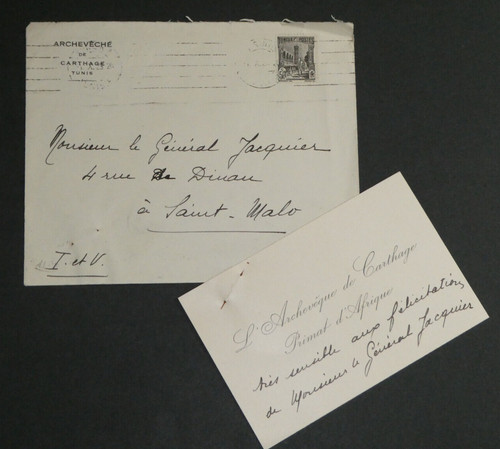 ARCHEVÊCHÉ
DE
CARTHAGE
TUNIS
Monsieur le Général Jacquier
4 rue de Dinan
à Saint-Malo
I. et V.
L'Archevêque de Carthage
Primat d'Afrique
très sensible aux félicitations
de Monsieur le Général Jacquier